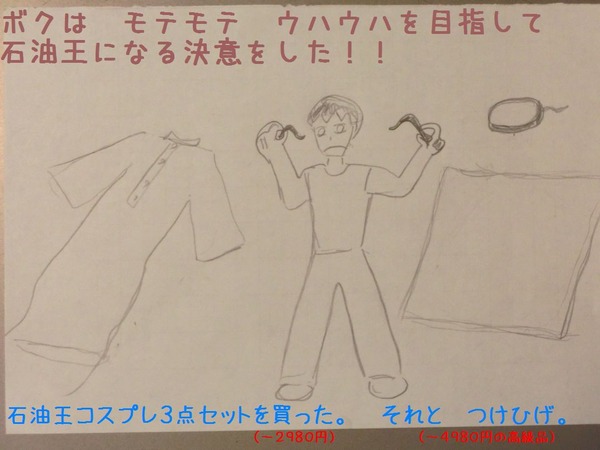 ボクは　モテモテ　ウハウハを目指して
石油王になる決意をした！！
石油王コスプレ3点セットを買った。　それと　つけひげ。
(－2980円)　(－4980円の高級品)